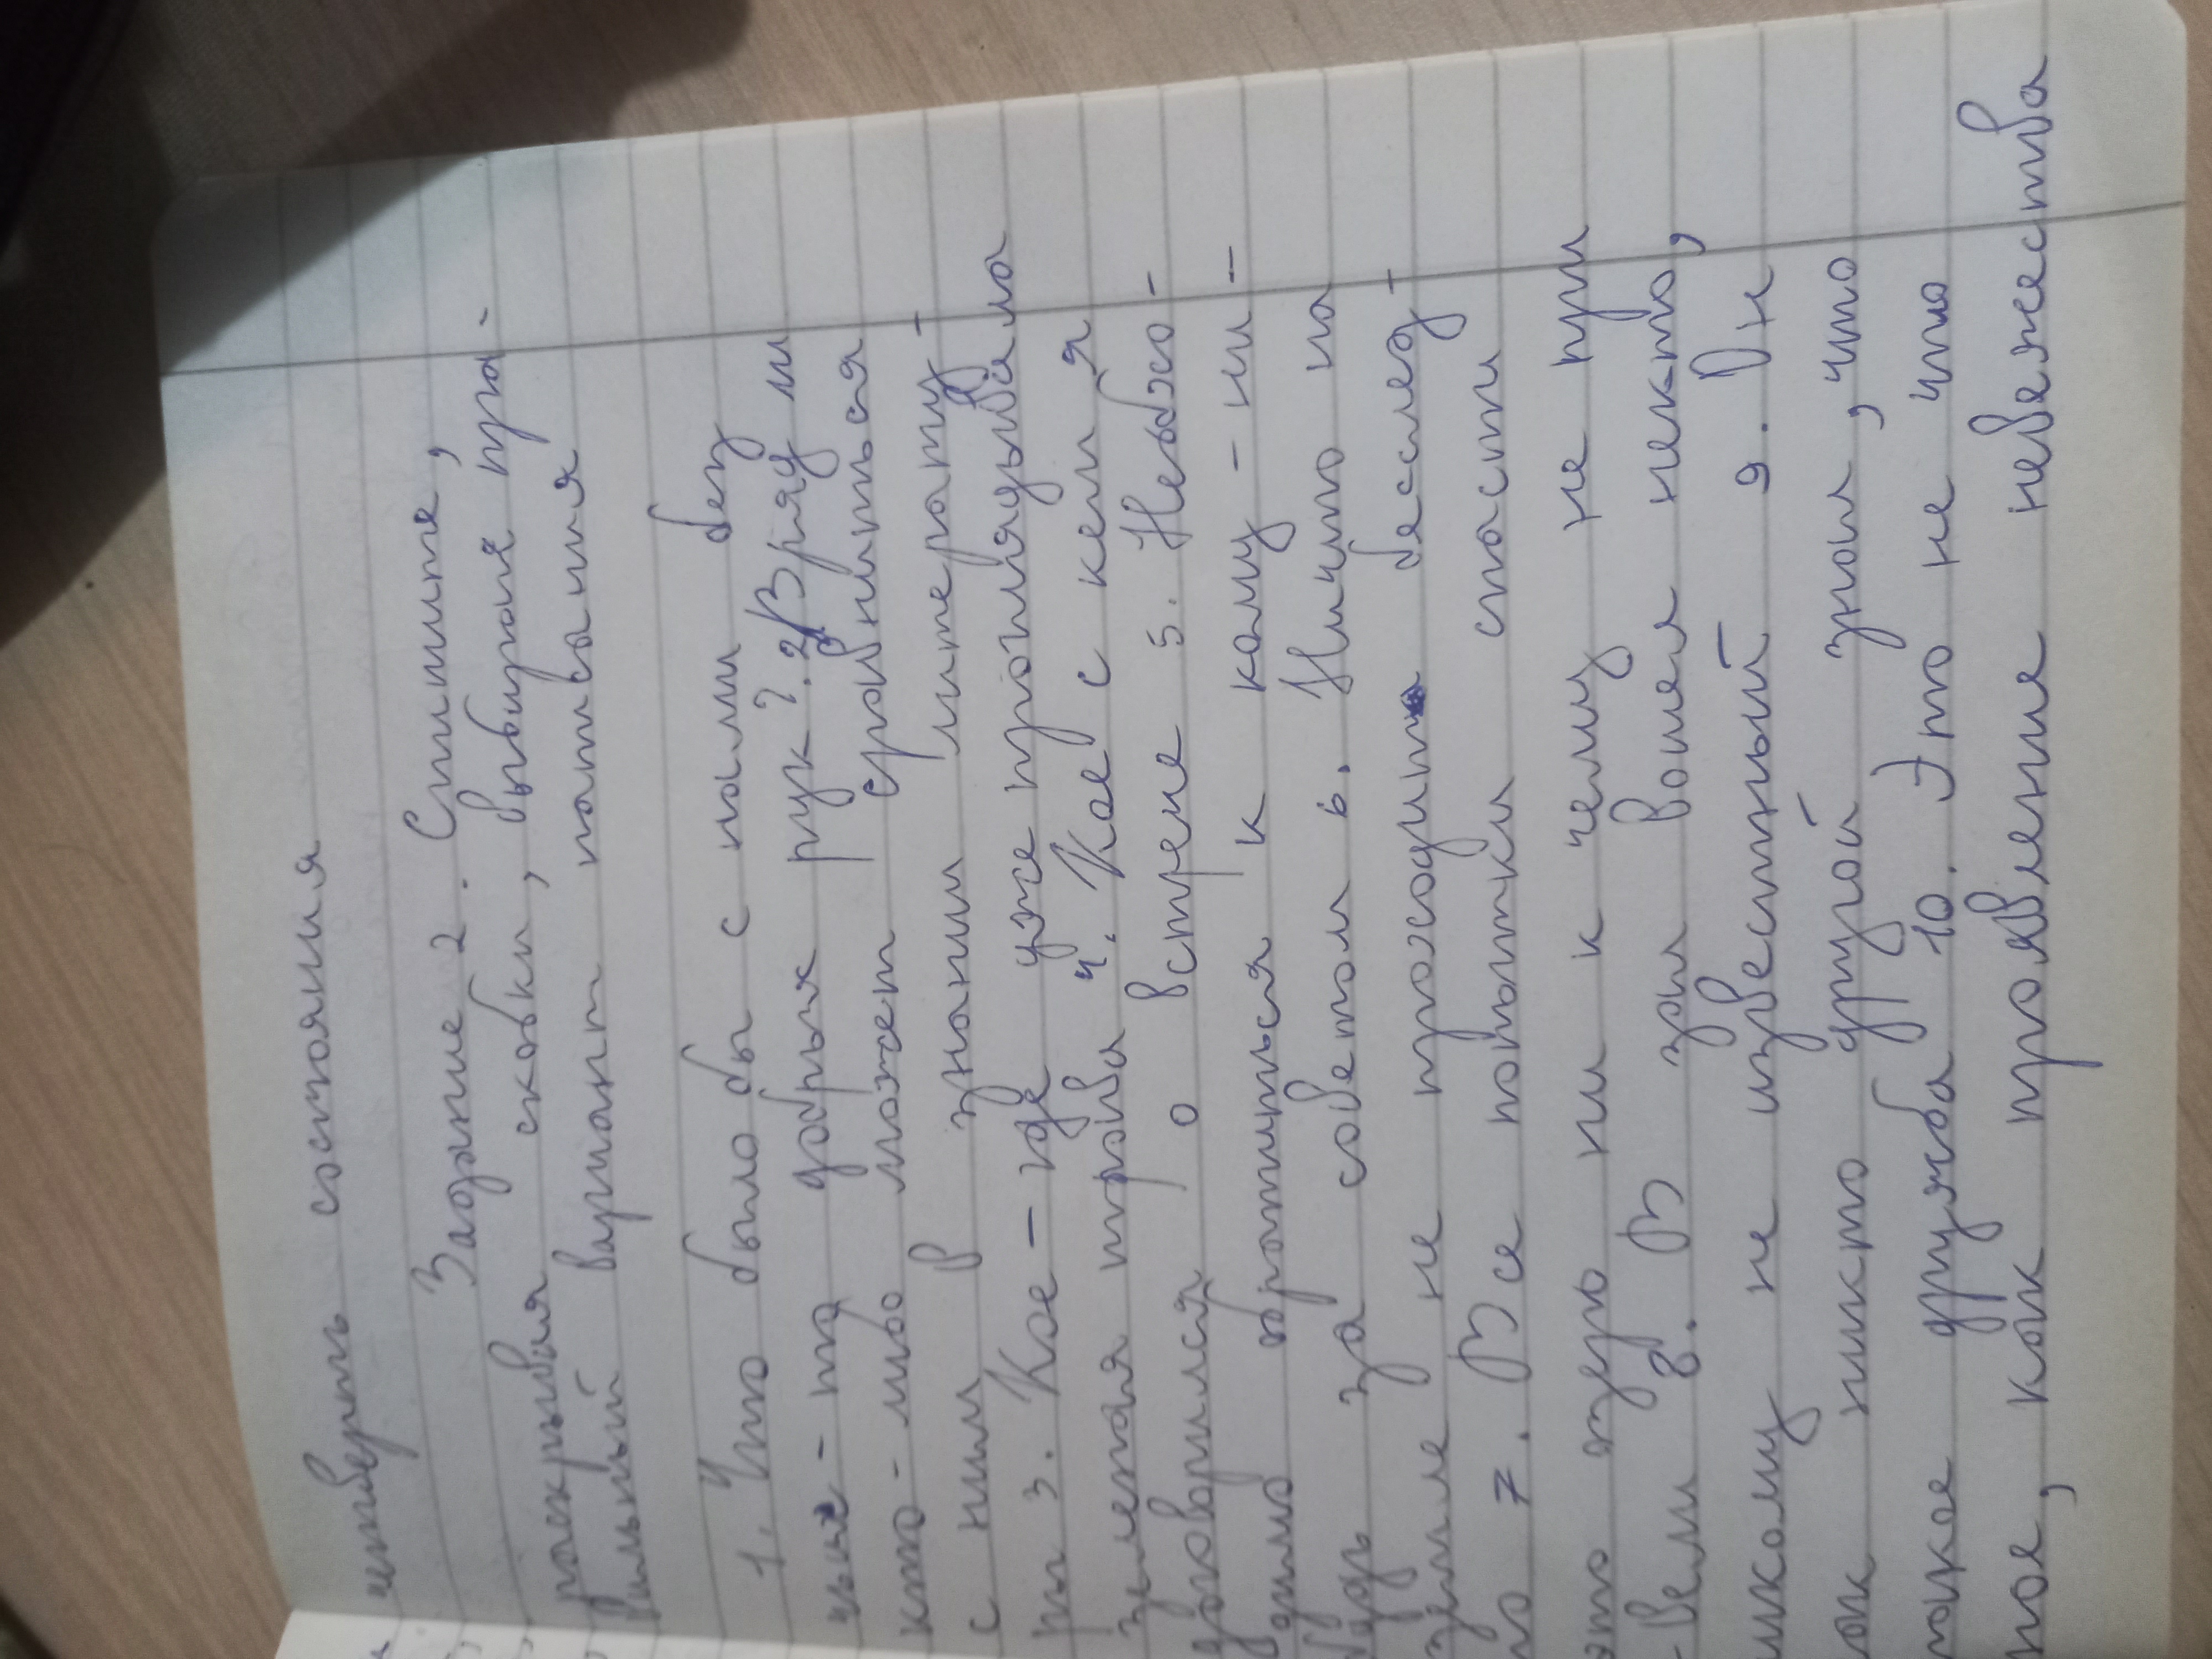 четверть состояния
Задание 2. Спишите,
раскрывая скобки, выбирая пра-
вильный вариант написания
1. Что было бы с нами без
чьих-то добрых рук? 2. Вряд ли
кто-либо может сравниться
с ним в знании литерату-
ры 3. Кое-где уже проглядывала
зеленая трава 4. Кое с кем я
договорился о встрече 5. Необхо-
димо обратиться к кому-ни-
будь за советом 6. Ничто на
земле не проходит бесслед-
но 7. Все попытки спасти
это зеро ни к чему не при
-вели 8. В зал вошел некто,
никому не известный 9. Он
как никто другой знал, что
такое дружба 10. Это не что
ное, как проявление невежества